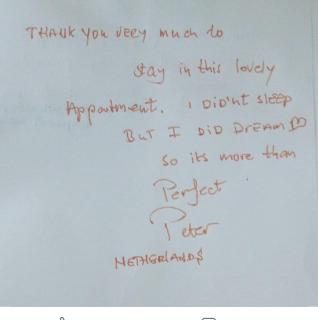 THANK you very much to
stay in this lovely
Appoutment. I DiD'nt sleep
BUT I DID DREAM
so its more than
Perfect
Peter
NETHERLANDS